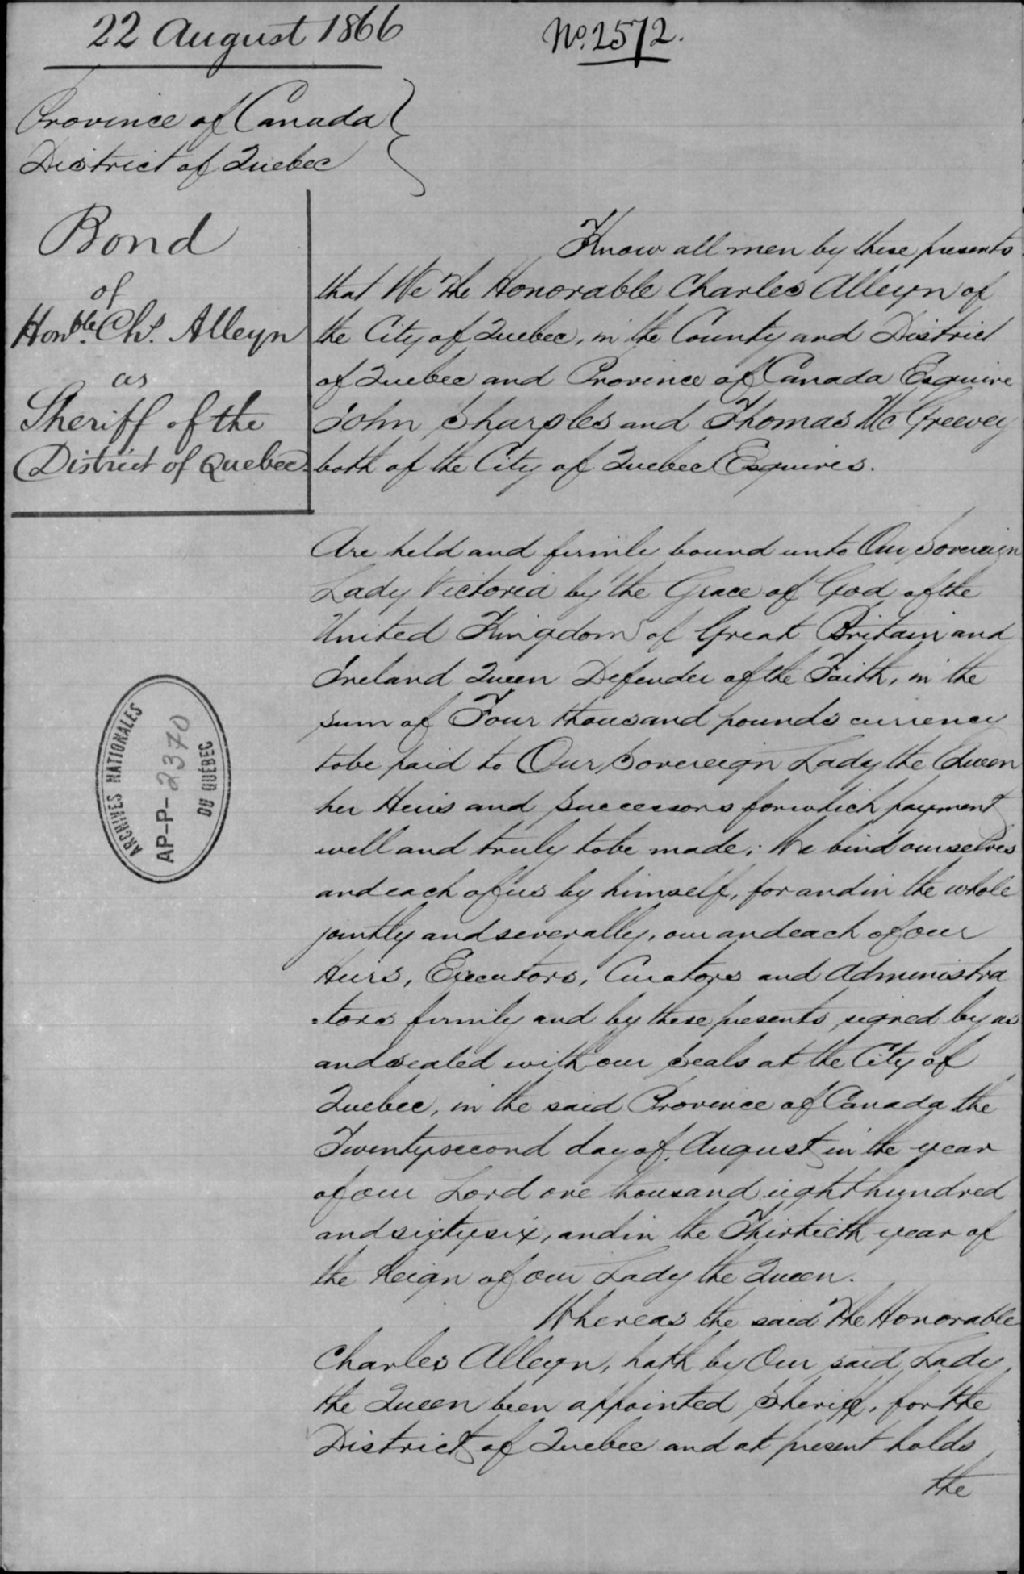 22 August 1866
No. 2572.
Province of Canada
District of Quebec
Bond
of
Honble. Chs. Alleyn
as
Sheriff of the
District of Quebec
Know all men by these presents
that We The Honorable Charles Alleyn of
the City of Quebec, in the County and District
of Quebec and Province of Canada Esquire
John Sharples and Thomas McGreevey
both of the City of Quebec Esquires.
Are held and firmly bound unto Our Sovereign
Lady Victoria by the Grace of God of the
United Kingdom of Great Britain and
Ireland Queen Defender of the Faith, in the
sum of Four thousand pounds currency
to be paid to Our Sovereign Lady the Queen
her Heirs and Successors for which payment
well and truly to be made; We bind ourselves
and each of us by himself, for and in the whole
jointly and severally, our and each of our
Heirs, Executors, Curators and Administra
-tors firmly and by these presents signed by us
and sealed with our Seals at the City of
Quebec, in the said Province of Canada the
Twenty second day of August in the year
of our Lord one thousand eight hundred
and sixty six, and in the Thirtieth year of
the Reign of our Lady the Queen.
Whereas the said The Honorable
Charles Alleyn, hath by Our said Lady,
the Queen been appointed Sheriff, for the
District of Quebec and at present holds
the
ARCHIVES NATIONALES
AP-P-2370
DU QUÉBEC